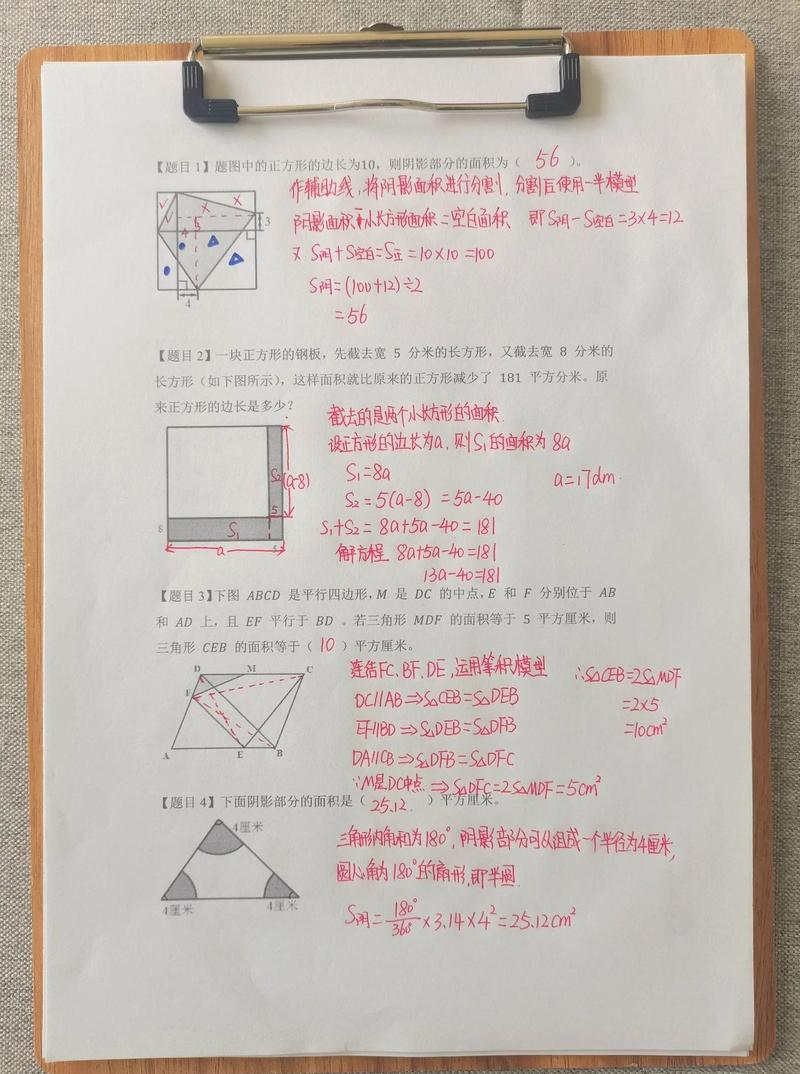 【题目 1】题图中的正方形的边长为10，则阴影部分的面积为（ 56 ）。
作辅助线，将阴影面积进行分割，分割后使用一半模型
阴影面积-小长方形面积=空白面积 即S阴-S空白=3×4=12
又 S阴+S空白=S正=10×10=100
S阴=(100+12)÷2
=56
3
4
【题目 2】一块正方形的钢板，先截去宽 5 分米的长方形，又截去宽 8 分米的
长方形（如下图所示），这样面积就比原来的正方形减少了 181 平方分米。原
来正方形的边长是多少？
截去的是两个小长方形的面积.
设正方形的边长为a，则S₁的面积为 8a
S₁=8a
a=17dm.
S₂=5(a-8)=5a-40
S₁+S₂=8a+5a-40=181
解方程 8a+5a-40=181
13a-40=181
S₂ (a-8)
5
8 S₁
a 5
【题目 3】下图 ABCD 是平行四边形，M 是 DC 的中点，E 和 F 分别位于 AB
和 AD 上，且 EF 平行于 BD 。若三角形 MDF 的面积等于 5 平方厘米，则
三角形 CEB 的面积等于（ 10 ）平方厘米。
D M C
F
A E B
连结FC、BF、DE，运用等积模型
DC//AB⇒S△CEB=S△DEB
EF//BD⇒S△DEB=S△DFB
DA//CB⇒S△DFB=S△DFC
∵M是DC中点 ⇒S△DFC=2S△MDF=5cm²
∴S△CEB=2S△MDF
=2×5
=10cm²
【题目 4】下面阴影部分的面积是（ 25.12 ）平方厘米。
4厘米
4厘米 4厘米
三角形内角和为180°，阴影部分可以组成一个半径为4厘米，
圆心角为180°的扇形，即半圆.
S阴=180°/360°×3.14×4²=25.12cm²